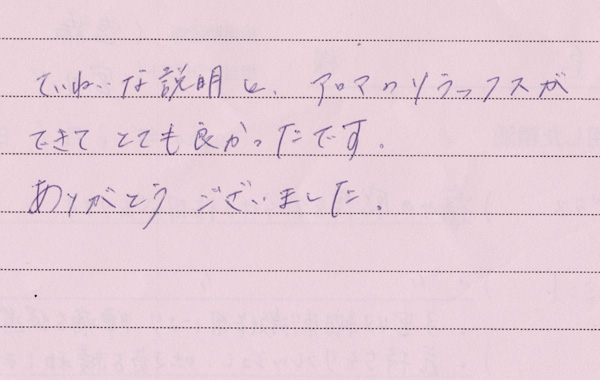 ていねいな説明と、アロマのリラックスが
できてとても良かったです。
ありがとうございました。